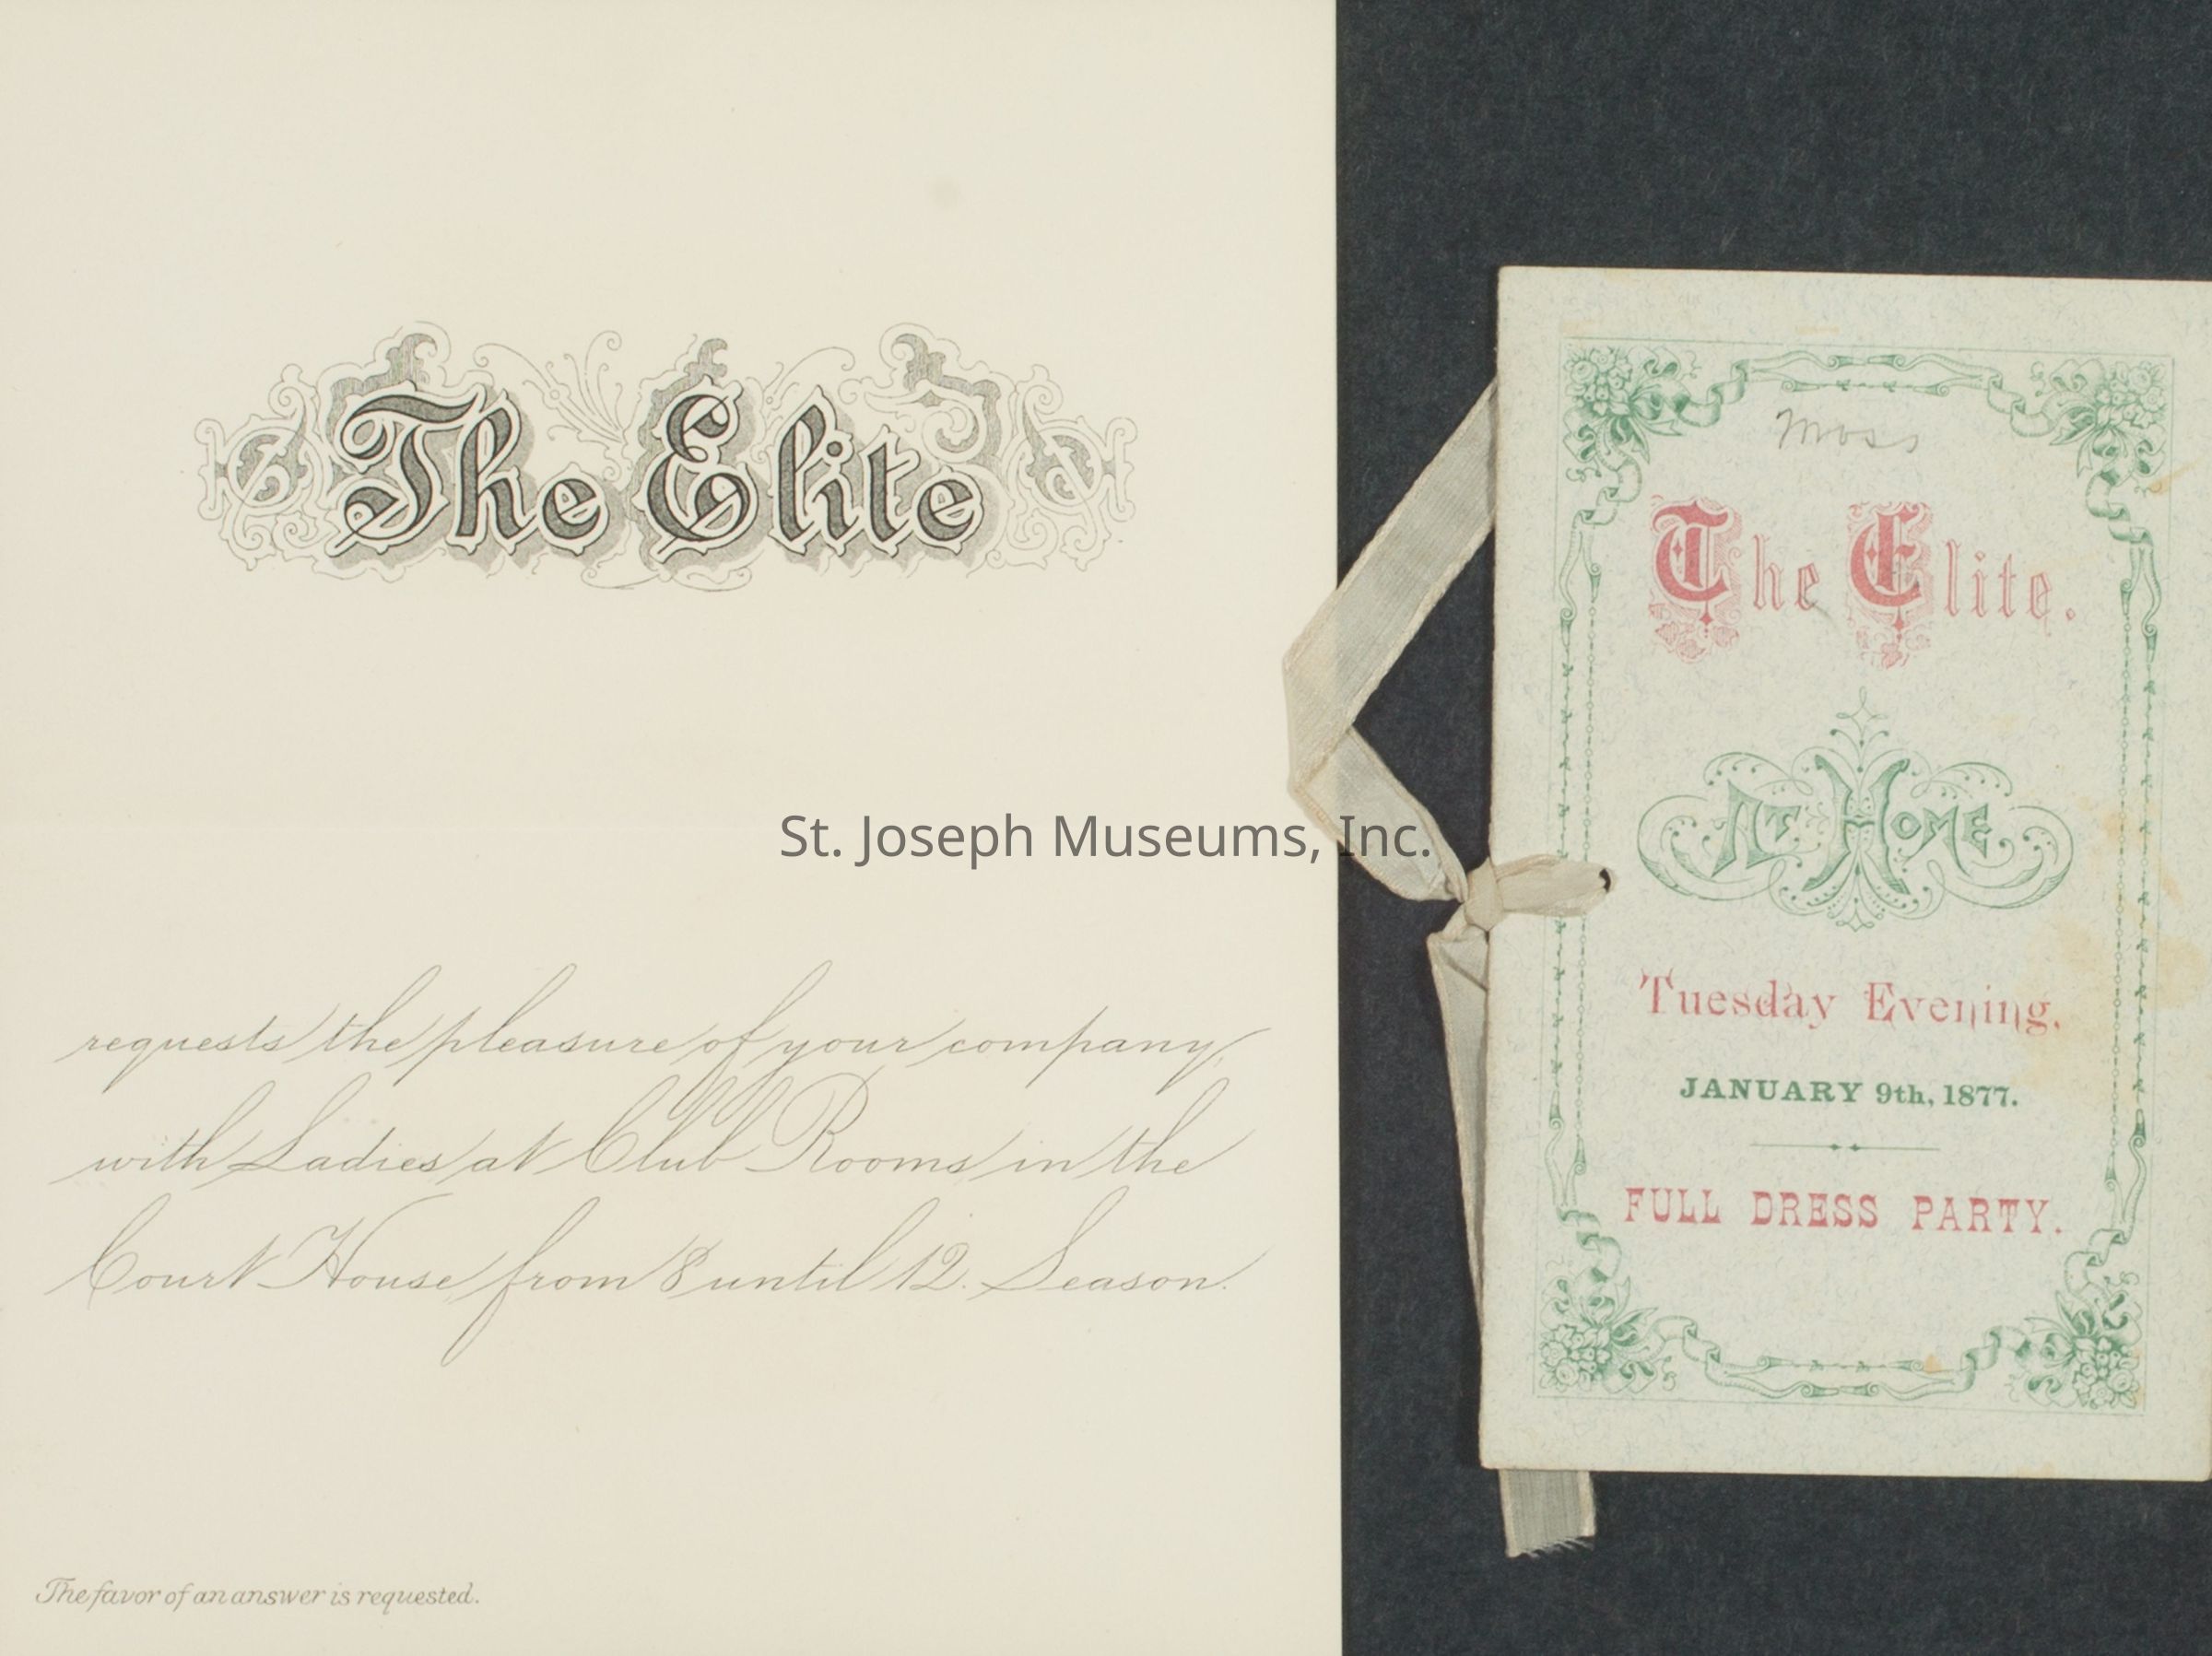 The Elite
requests the pleasure of your company,
with Ladies at Club Rooms in the
Court House from 8 until 12. Season.
The favor of an answer is requested.
St. Joseph Museums, Inc.
Moss
The Elite.
AT HOME
Tuesday Evening,
JANUARY 9th, 1877.
FULL DRESS PARTY.